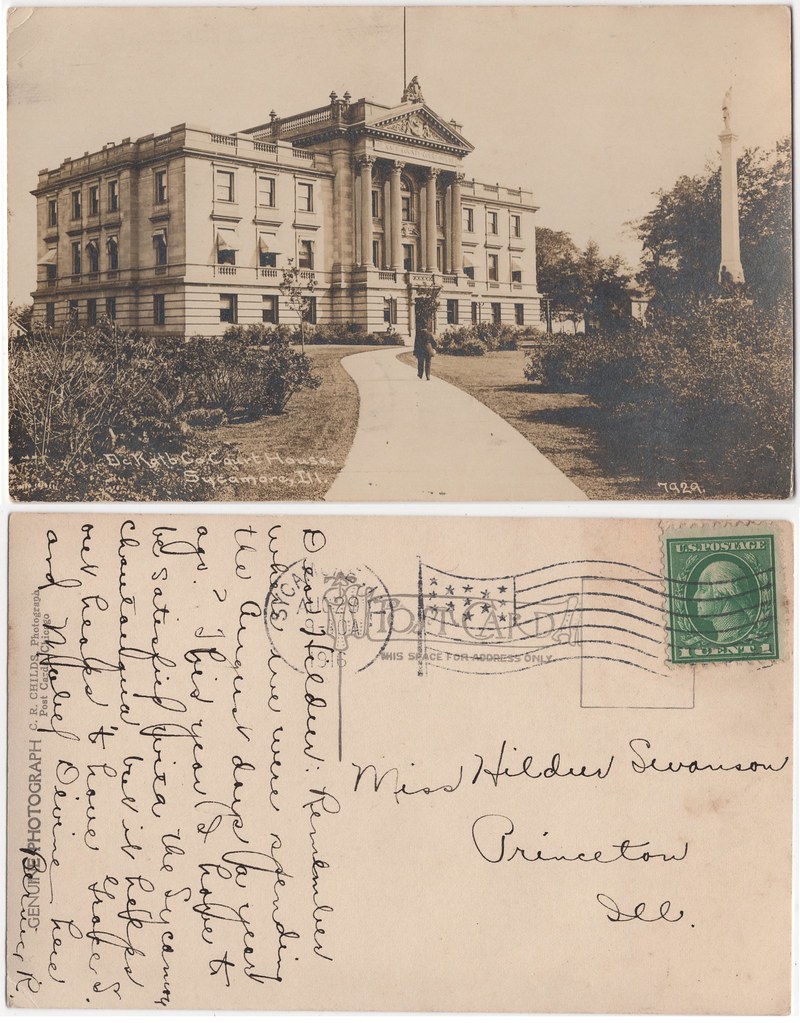 De Kalb Co. Court House,
Sycamore, Ill.
7929.
U.S. POSTAGE
1 CENT 1
POST CARD
THIS SPACE FOR ADDRESS ONLY
AUG
29
1916
Miss Hildur Swanson
Princeton
Ill.
Dear Hildur: Remember
where we were spending
the August days a year
ago? This year I have to
be satisfied with the Sycamore
chautauqua but it helps
out heaps to have Grace S.
and Mabel Devine here
Bernice R.
GENUINE PHOTOGRAPH C. R. CHILDS, Photograph,
Post Cards, Chicago